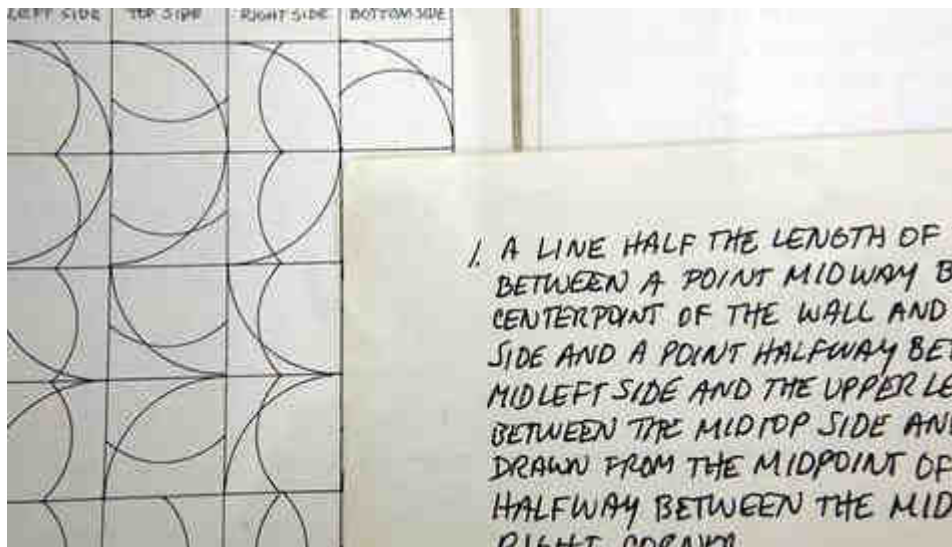 LEFT SIDE TOP SIDE RIGHT SIDE BOTTOM SIDE
1. A LINE HALF THE LENGTH OF
BETWEEN A POINT MIDWAY B
CENTERPOINT OF THE WALL AND
SIDE AND A POINT HALFWAY BET
MIDLEFT SIDE AND THE UPPER LE
BETWEEN THE MIDTOP SIDE AND
DRAWN FROM THE MIDPOINT OF
HALFWAY BETWEEN THE MID
RIGHT CORNER